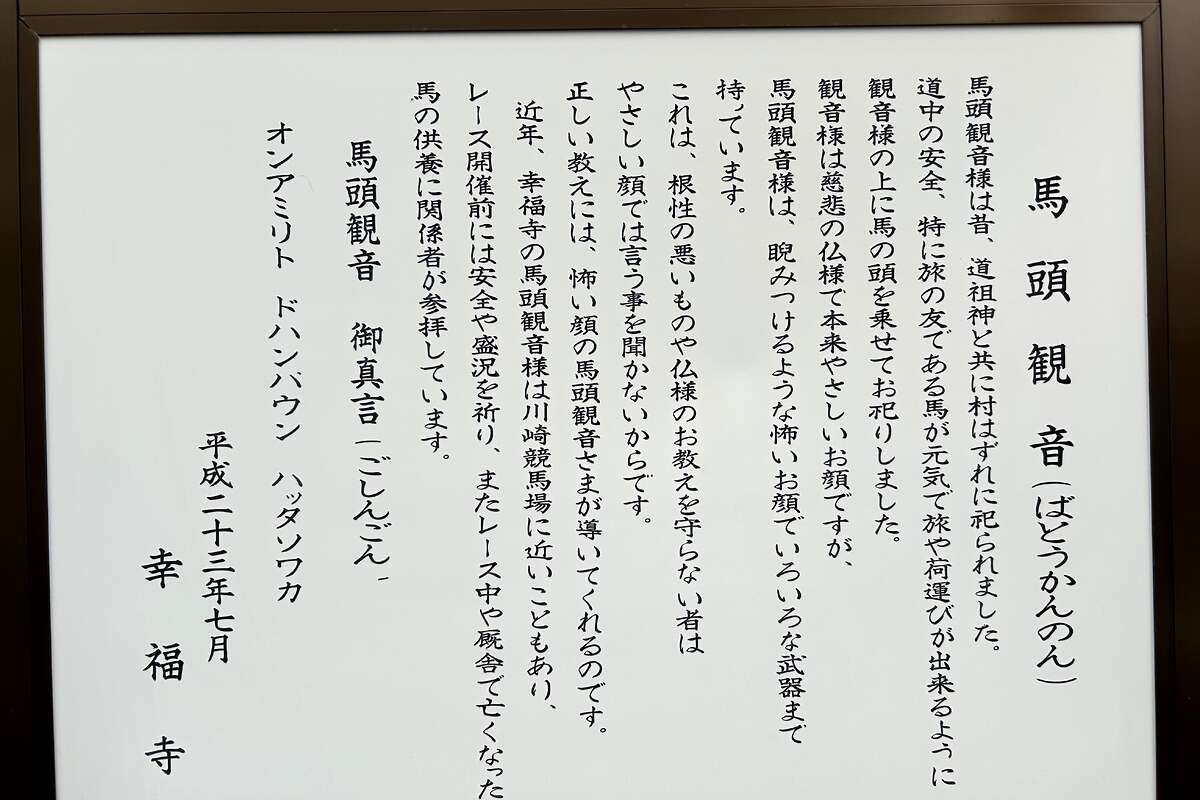 馬頭観音(ばとうかんのん)
馬頭観音様は昔、道祖神と共に村はずれに祀られました。
道中の安全、特に旅の友である馬が元気で旅や荷運びが出来るように
観音様の上に馬の頭を乗せてお祀りしました。
観音様は慈悲の仏様で本来やさしいお顔ですが、
馬頭観音様は、睨みつけるような怖いお顔でいろいろな武器まで
持っています。
これは、根性の悪いものや仏様のお教えを守らない者は
やさしい顔では言う事を聞かないからです。
正しい教えには、怖い顔の馬頭観音さまが導いてくれるのです。
近年、幸福寺の馬頭観音様は川崎競馬場に近いこともあり、
レース開催前には安全や盛況を祈り、またレース中や厩舎で亡くなった
馬の供養に関係者が参拝しています。
馬頭観音 御真言(ごしんごん)
オンアミリト ドハンバウン ハッタソワカ
平成二十三年七月
幸福寺